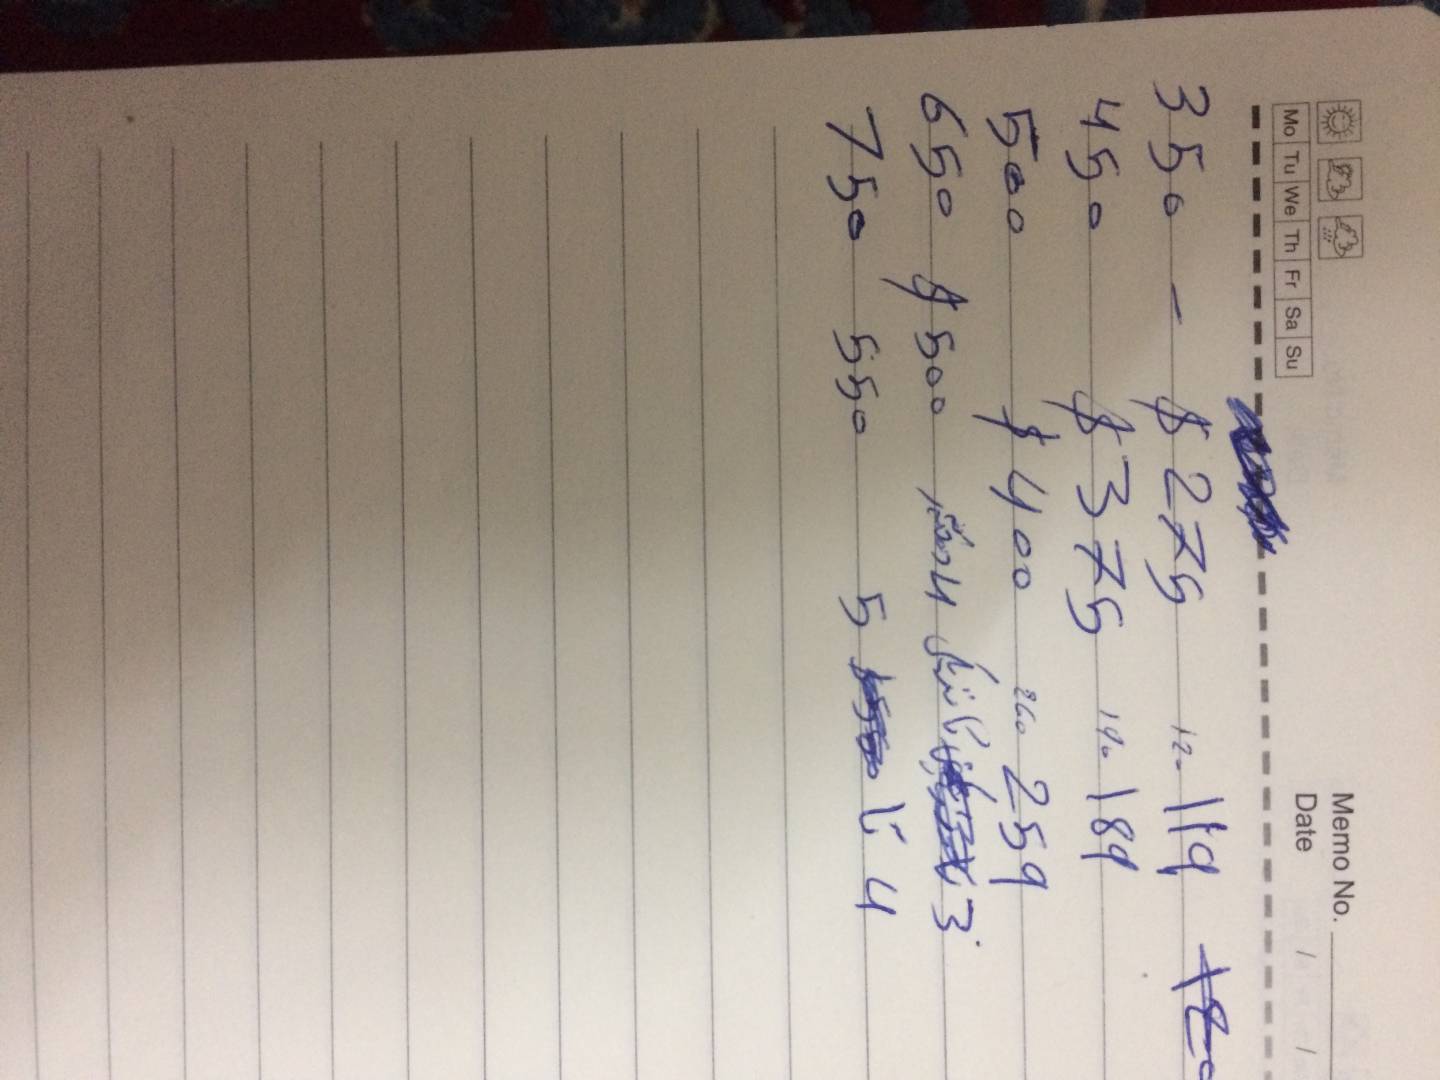 Memo No.
Mo Tu We Th Fr Sa Su
Date / /
350 - $ 275 120 119
450 $ 375 190 189
500 $ 400 260 259
650 $ 500 4 3
750 550 5 تا 4